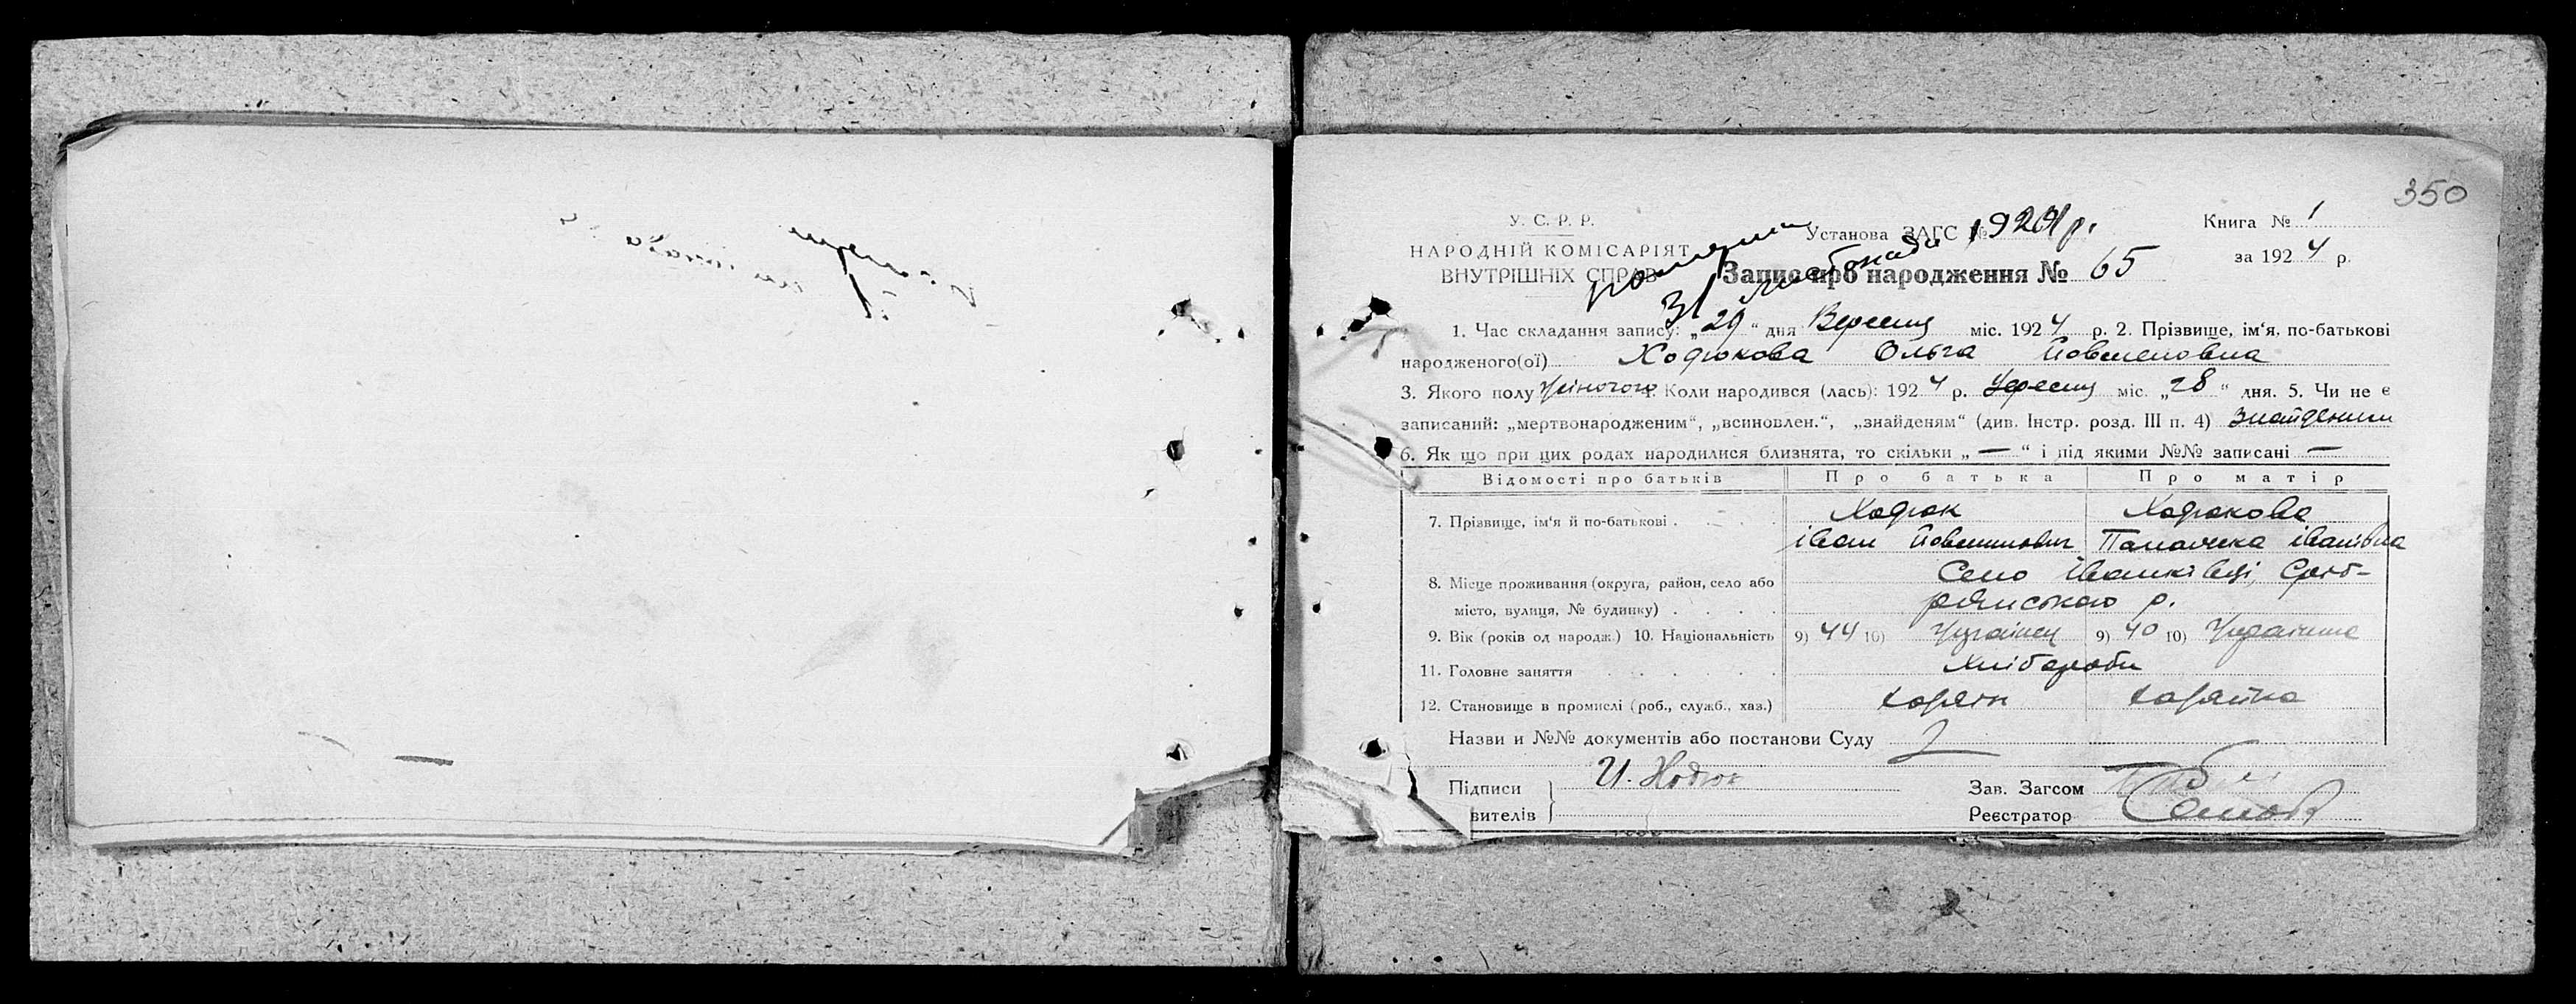 350
У. С. Р. Р.
НАРОДНІЙ КОМІСАРІЯТ
ВНУТРІШНІХ СПРАВ
Установа ЗАГС №
Книга № 1
за 1924 р.
Запис про народження № 65
31 1924 р.
1. Час складання запису: „29“ дня Вересня міс. 1924 р. 2. Прізвище, ім‘я, по-батькові
народженого(ої) Ходюкова Ольга
3. Якого полу жіночого 4. Коли народився (лась): 1924 р. Вересня міс. „28“ дня. 5. Чи не є
записаний: „мертвонародженим“, „всиновлен.“, „знайденям“ (див. Інстр. розд. III п. 4)
6. Як що при цих родах народилися близнята, то скільки „—“ і під якими №№ записані —
Відомості про батьків Про батька Про матір
7. Прізвище, ім‘я й по-батькові Ходюк Ходюкова
іван іванівна
8. Місце проживання (округа, район, село або Село Іванківці,
місто, вулиця, № будинку) р.
9. Вік (років од народж.) 10. Національність 9) 44 10) Українец 9) 40 10) Українка
11. Головне заняття Хлібороби
12. Становище в промислі (роб., служб., хаз.) хазяін хазяйка
Назви и №№ документів або постанови Суду
Підписи И. Ходюк Зав. Загсом
вителів Реєстратор